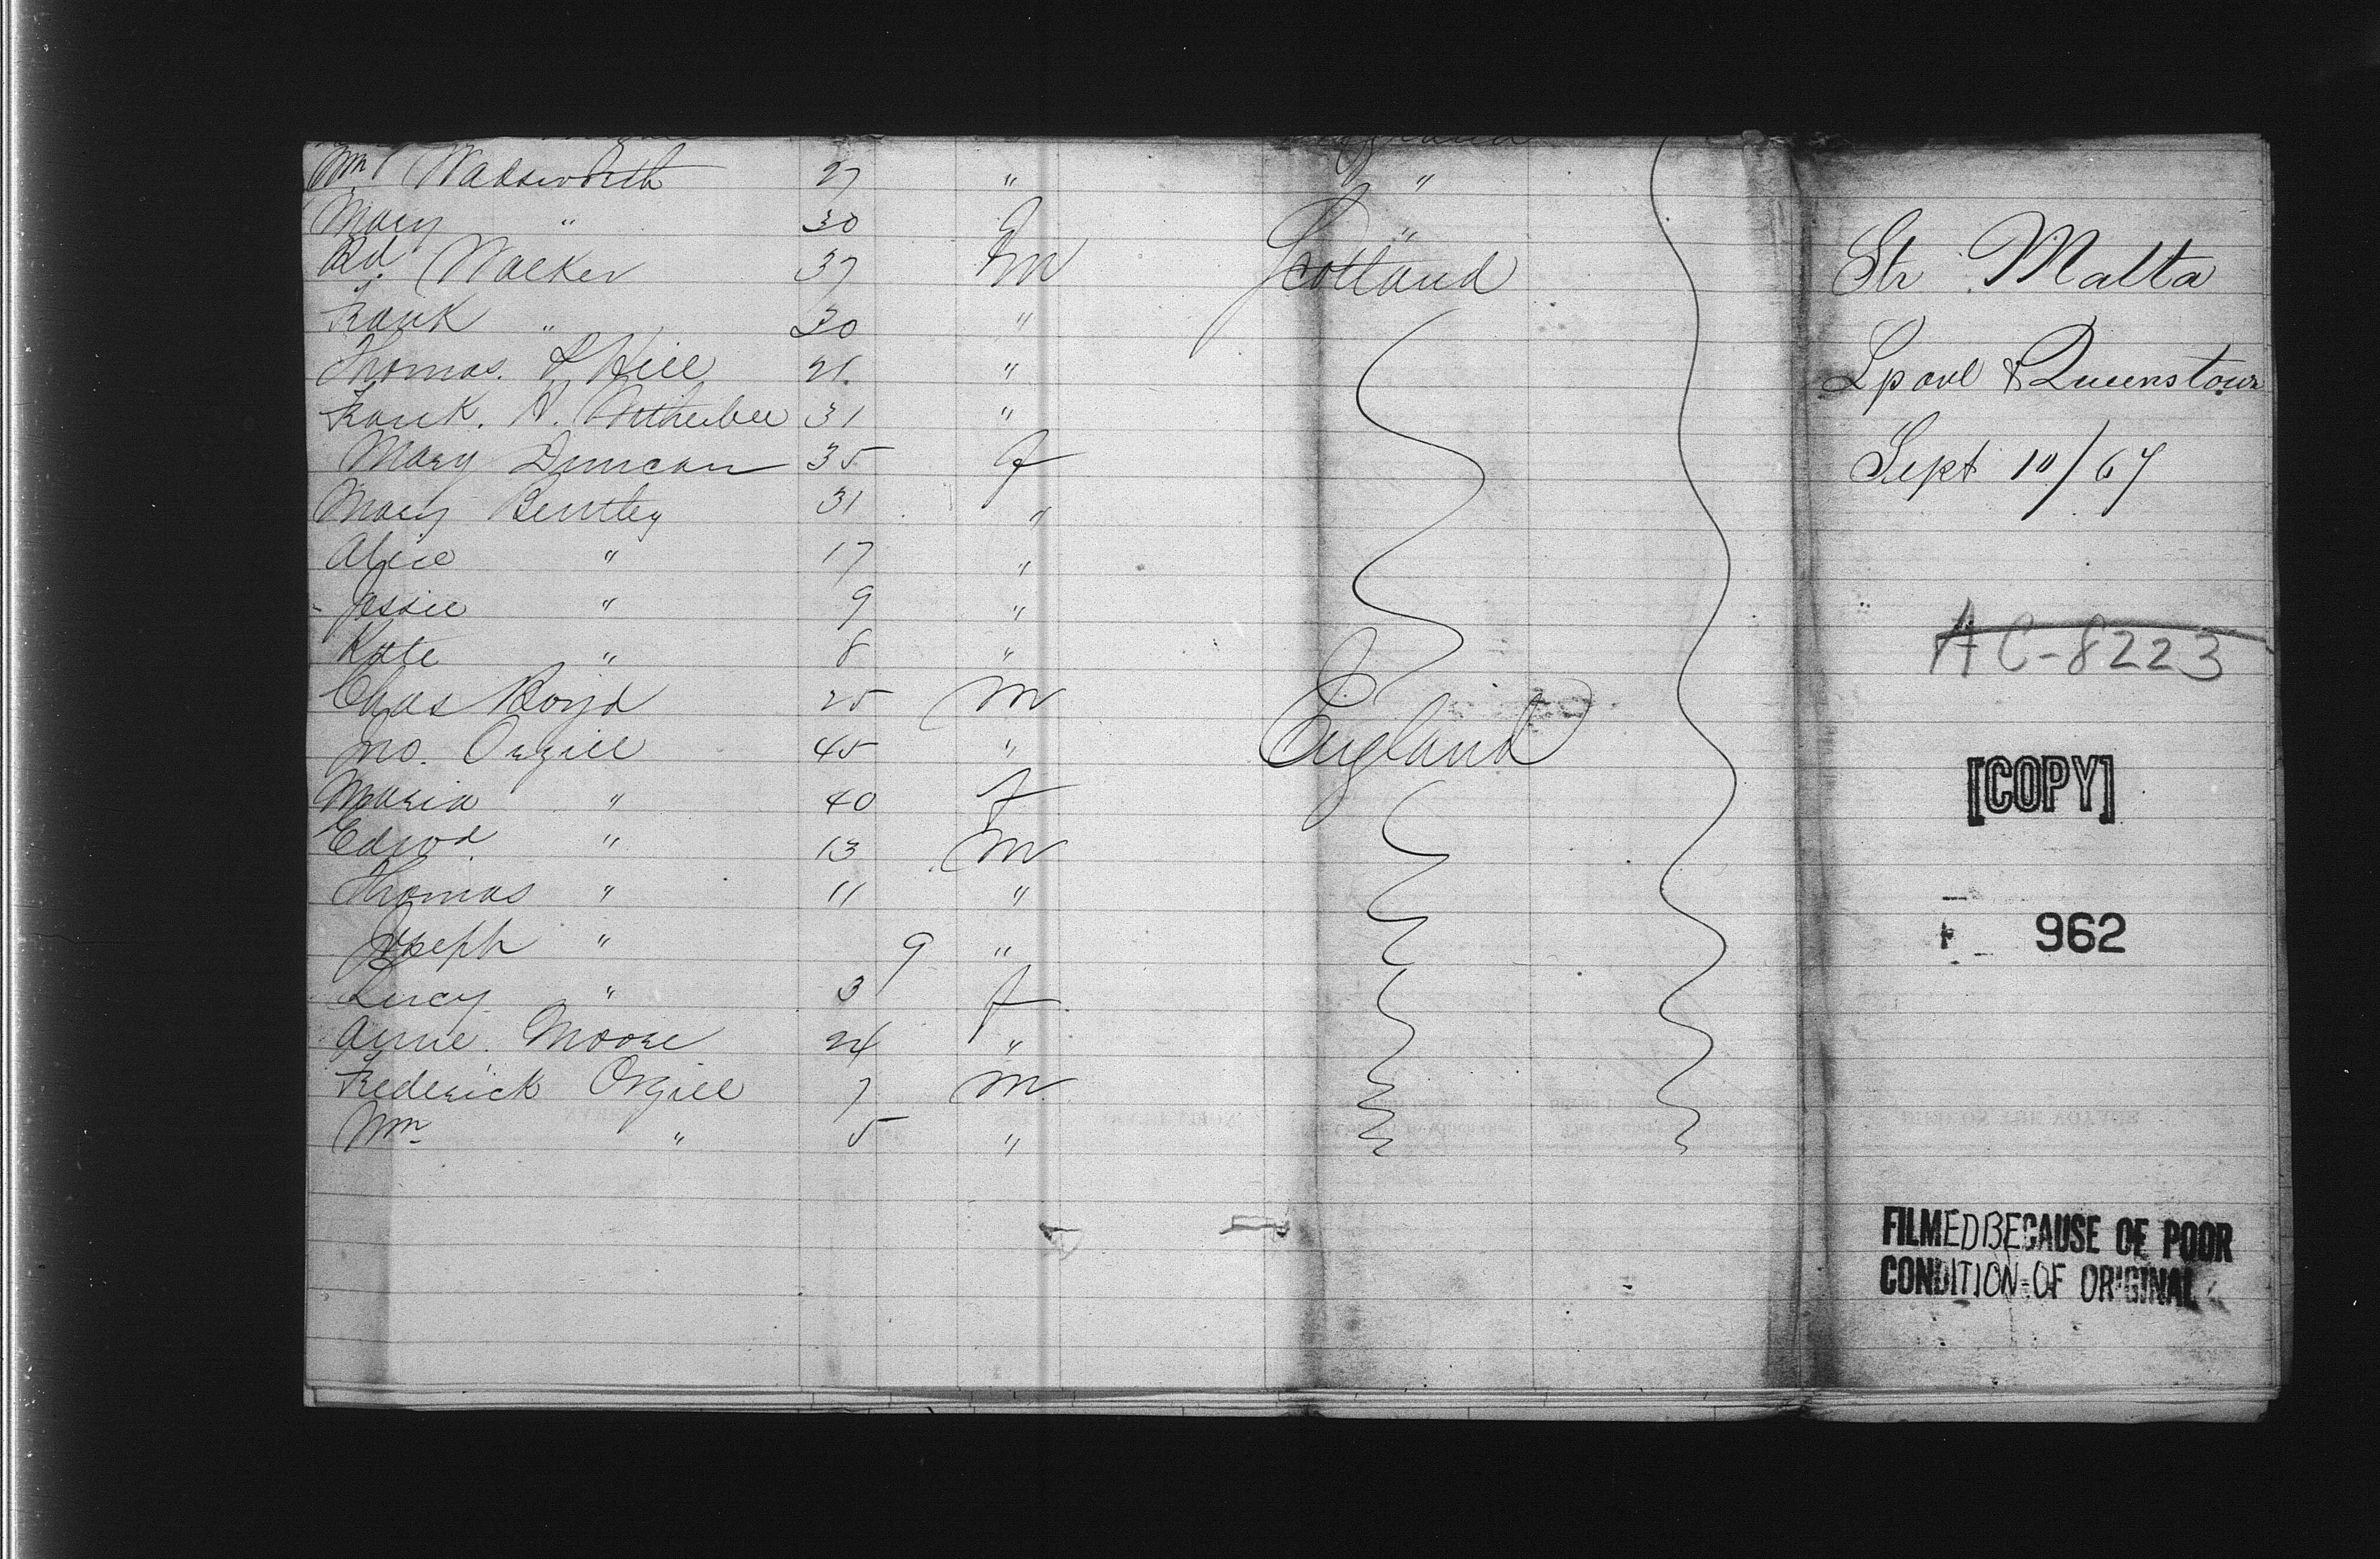 Wm Wadsworth 27 " "
Mary " 30 f "
Rd. Walker 37 m Scotland
Frank " 30 "
Thomas. & Hill 21. "
Frank. H. Netherbee 31 "
Mary Duncan 35 f
Mary Bentley 31 "
Alice " 17 "
Jessie " 9 "
Kate " 8 "
Chas Boyd 25 m England
Jno. Orgill 45 "
Maria " 40 f
Edwd. " 13 m
Thomas " 11 "
Joseph " 9 "
Lucy " 3 f
Annie. Moore 24 "
Frederick Orgill 7 m
Wm " 5 "
Str Malta
Lpool & Queenstown
Sept 10/67
AC-8223
[COPY]
962
FILMED BECAUSE OF POOR
CONDITION OF ORIGINAL